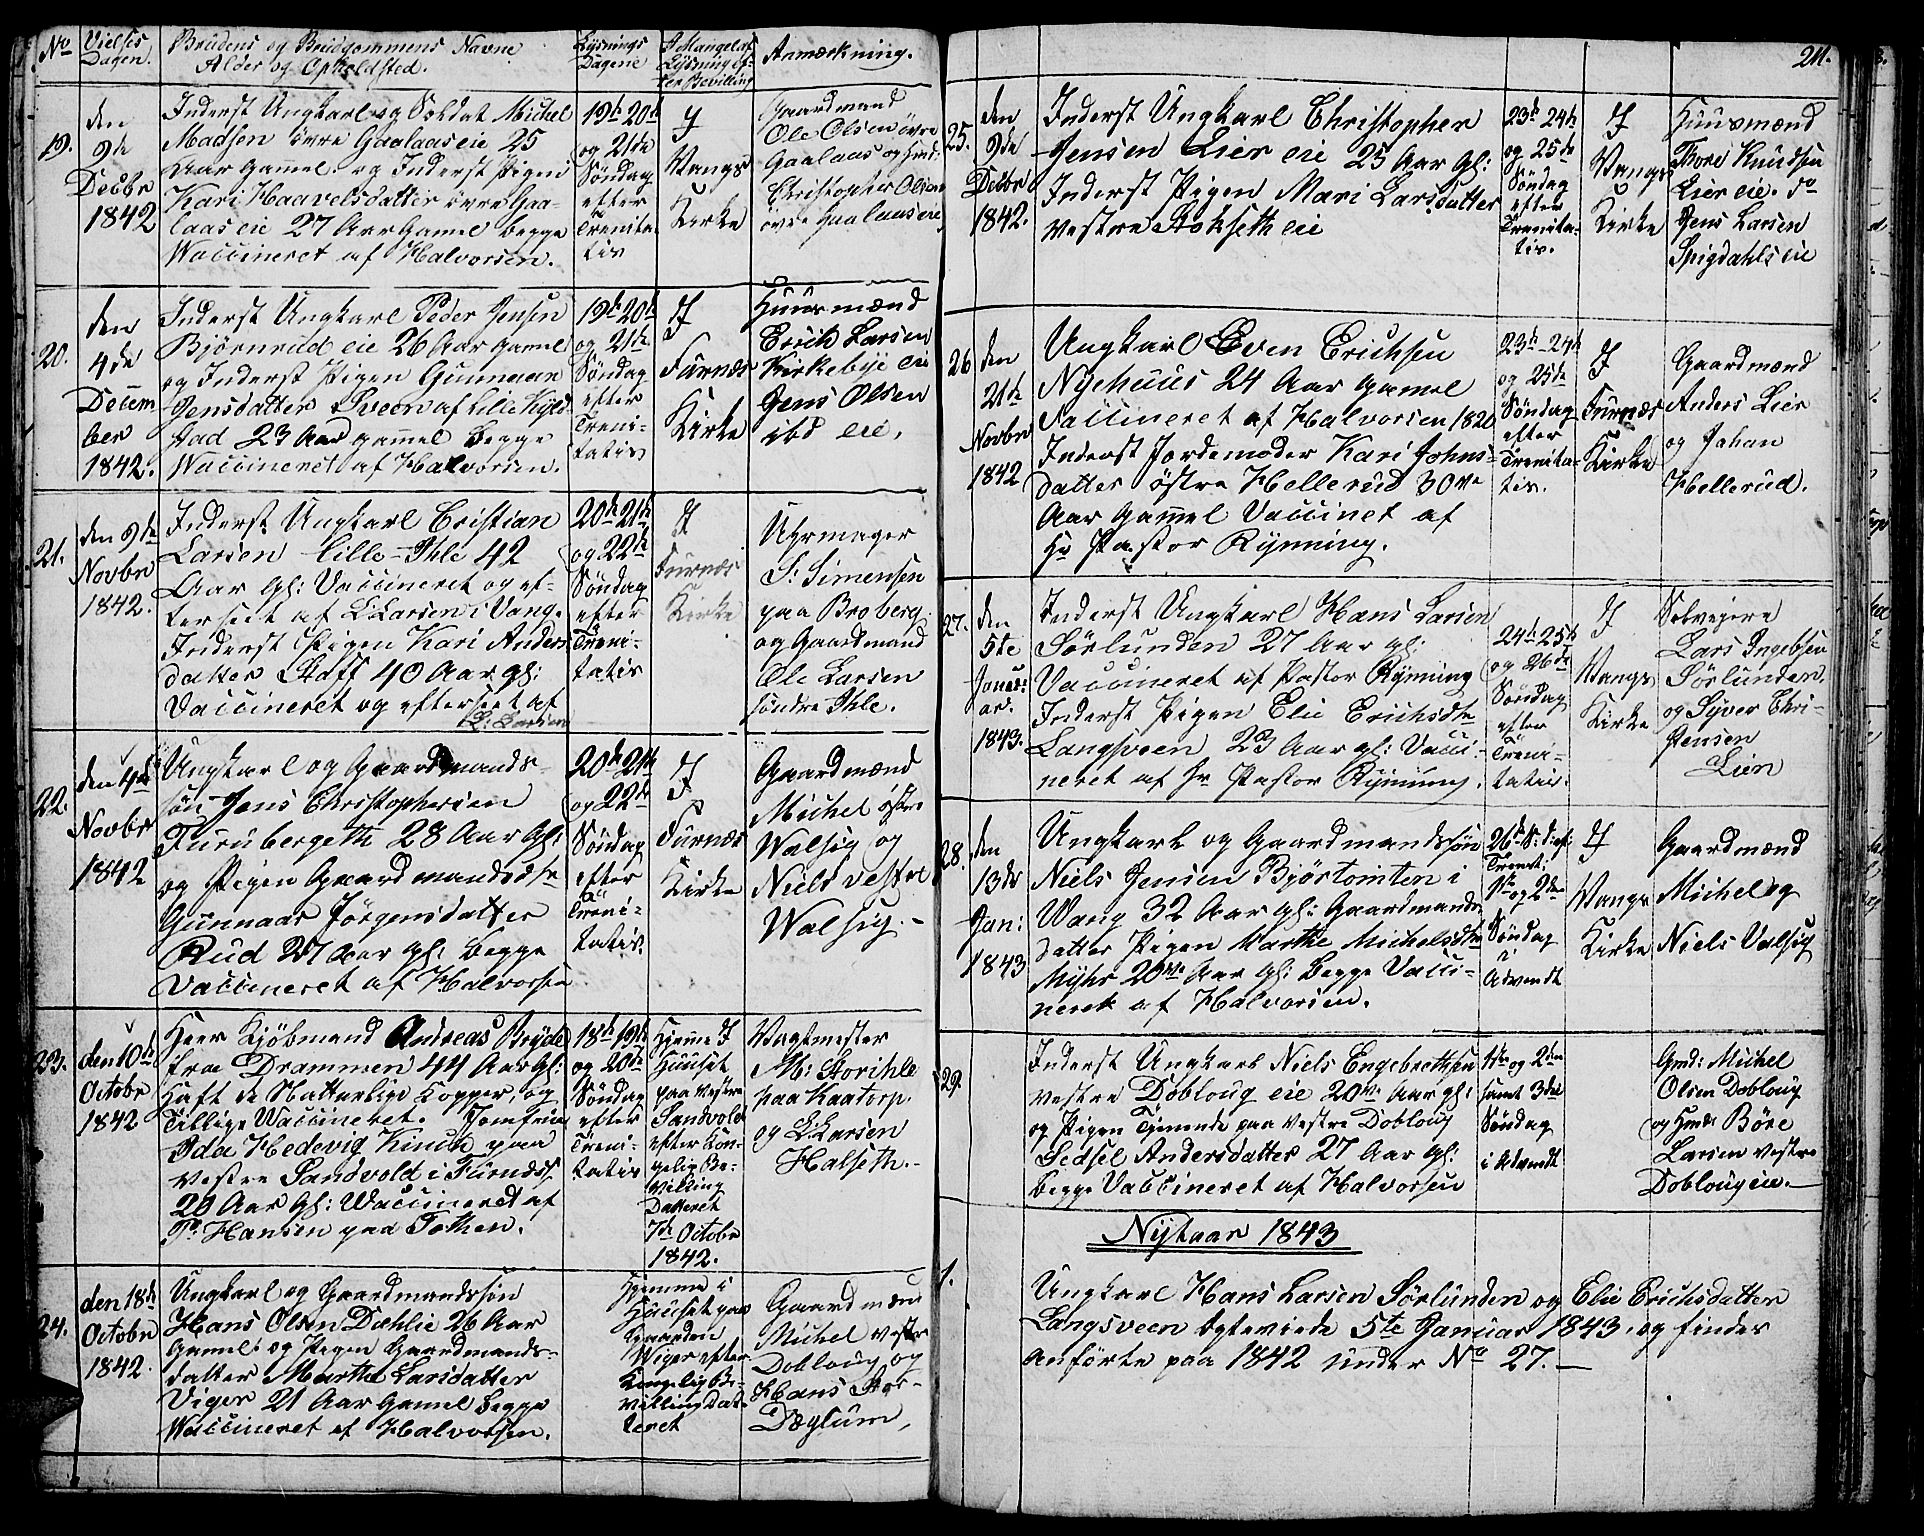 No
Vielses
Dagen.
Brudens og Brudgommens Navne
Alder og Opholdsted.
Lysnings
Dagene
I Mangel af
Lysning ef-
ter Bevilling
Anmærkning.
19.
den
9de
Decbr
1842
Inderst Ungkarl og Soldat Michel
Madsen övre Gaalaas eie 25
Aar gamel og Inderst Pigen
Kari Haavelsdatter övre Gaa-
laas eie 27 Aar Gamel begge
Vaccineret af Halvorsen.
19de 20de
og 21de
Söndag
efter
Trenita-
tis
I
Vangs
Kirke
Gaardmand
Ole Olsen övre
Gaalaas og
Christopher Olsen
övre Gaalaas eie
20.
den
4de
Decem
ber
1842.
Inderst Ungkarl Peder Jensen
Björnerud eie 26 Aar gamel
og Inderst Pigen Gunnaar
Jensdatter Sveen af Lille
stad 23 Aar gamel begge
Vaccineret af Halvorsen.
19de 20de
og 21de
Söndag
efter
Treni-
tatis
I
Furnæs
Kirke
Huusmænd
Erich Larsen
Kirkebye eie
Jens Olsen
ibd eie.
21.
den 9de
Novbr
1842.
Inderst Ungkarl Cristian
Larsen Lille-Ihle 42
Aar gl: Vaccineret og ef-
terseet af L: Larsen i Vang.
Inderst Pigen Kari Anders
datter Staff 40 Aar gl:
Vaccineret og efterseet af
L: Larsen
20de 21de
og 22de
Söndag
efter
Treni-
tatis
I
Furnæs
Kirke
Uhrmager
S: Simensen
paa Broberg
og Gaardmand
Ole Larsen
söndre Ihle.
22.
den 4de
Novbr
1842
Ungkarl og Gaardmands-
sön Jens Christophersen
Furubergeth 28 Aar gl:
og Pigen Gaardmandsdtr
Gunnaar Jörgensdatter
Rud 27 Aar gl: begge
Vaccineret af Halvorsen
20de 21de
og 22de
Söndag
efter
Treni-
tatis.
I
Furnæs
Kirke
Gaardmænd
Michel östre
Walsig og
Niels vestre
Walsig.-
23.
den 10de
Octobr
1842
Herr Kjöbmand Andreas Bryde
fra Drammen 44 Aar gl:
Haft de Naturlige Kopper, og
Tillige Vaccineret. Jomfrue
Ida Hedevig Kinch paa
vestre Sandvold i Furnæss
20 Aar gl: Vaccineret af
Hansen paa Tothen.
18de 19de
og 20de
Söndag
efter
Treni-
tatis
Hjemme I
Huuset
paa vestre
Sandvold
efter Kon-
gelig Be-
villing
Datteret
7de Octobr
1842.
Vagtmester
M: Storihle
paa Kaatorp.
og L: Larsen
Halseth.-
24.
den 18de
Octobr
1842.
Ungkarl og Gaardmandssön
Hans Olsen Dæhlie 26 Aar
Gamel: og Pigen Gaardmands-
datter Marthe Larsdatter
Viger 21 Aar Gamel begge
Vaccineret af Halvorsen.
Hjemme i
Huuset paa
Gaarden
Wiger efter
Kongelig Be-
villing Dat-
teret
Gaardmænd
Michel vestre
Dobloug og
Hans Stor-
Dæglum,
211.
25.
den
9de
Decbr
1842.
Inderst Ungkarl Christopher
Jensen Lier eie 25 Aar gl:
Inderst Pigen Mari Larsdatter
vestre Stokseth eie
23de 24de
og 25de
Söndag
efter
Trenita-
tis.
I
Vangs
Kirke
Huusmænd
Thore Knudsen
Lier eie. do
Jens Larsen
Spigdahls eie
26
den
21de
Novbr
1842
Ungkarl Even Erichsen
Nyehuus 24 Aar gamel
Vaccineret af Halvorsen 1820
Inderst Jordemoder Kari Johns-
datter östre Hellerud 30ve
Aar gamel Vaccinet af
Hr Pastor Rynning.
23de 24de
og 25de
Söndag
efter
Trenita-
tis.
I
Furnæs
Kirke
Gaardmænd
Anders Lier
og Johan
Hellerud.
27.
den
5te
Janu-
ar.
1843.
Inderst Ungkarl Hans Larsen
Sörlunden 27 Aar gl:
Vaccineret af Pastor Rynning
Inderst Pigen Elie Erichsdtr
Langsveen 23 Aar gl: Vacci-
neret af Hr Pastor Rynning.
24de 25de
og 26de
Söndag
efter
Treni-
tatis.
I
Vangs
Kirke
Selvejere
Lars Ingebsen
Sörlunden.
og Syver Chri-
stensen
Lien
28.
den
13de
Jan:
1843
Ungkarl og Gaardmandssön
Niels Jensen Björtomten i
Wang 32 Aar gl: Gaardmands
datter Pigen Marthe Michelsdtr
Myhr 20ve Aar gl: begge Vacci-
neret af Halvorsen.
26de S: ef:
Trenit:
1ste og 2den
Söndag
i
Advendt
I
Vangs
Kirke
Gaardmænd
Michel og
Niels Valsig
29.
Inderst Ungkarl Niels Engebrethsen
vestre Dobloug eie 20ve Aar gl:
og Pigen Tjenende paa vestre Dobloug
Sedsel Andersdatter 27 Aar gl:
begge Vaccineret af Halvorsen
1ste og 2den
samt 3die
Söndag
i Advendt
Gmd: Michel
Olsen Dobloug
og Hmd: Böre
Larsen vestre
Dobloug eie.-
Nytaar 1843
1.
Ungkarl Hans Larsen Sörlunden og Elie Erichsdatter
Langsveen Egteviede 5te Januar 1843. og findes
anförte paa 1842 under No 27.-